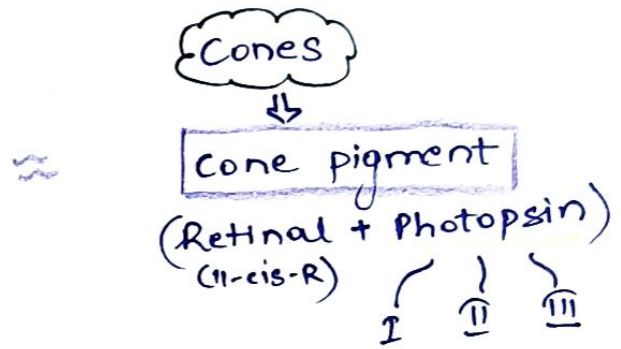 Cones
Cone pigment
(Retinal + Photopsin)
(11-cis-R)
I II III